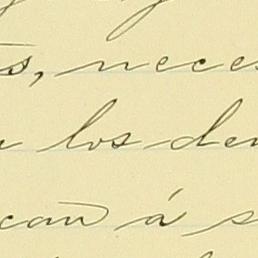 s, neces
los den
can á s